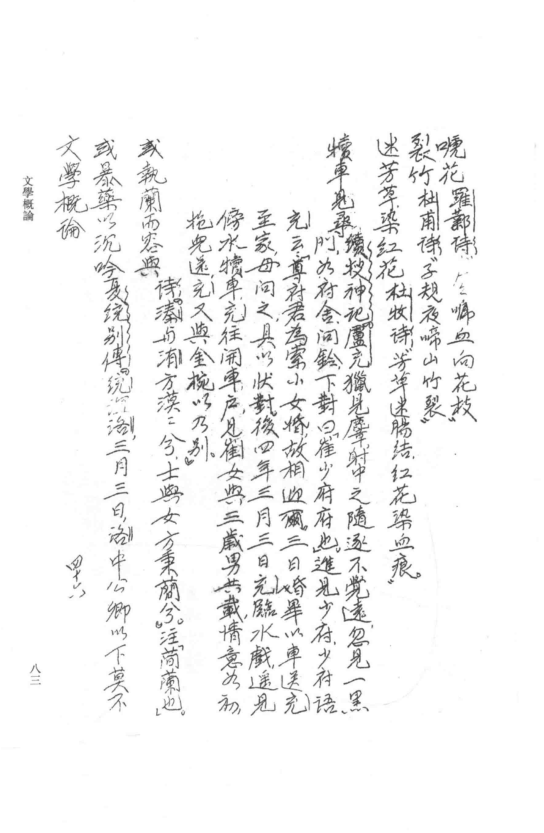 唲花 羅鄴詩 啼血向花枝
裂竹 杜甫詩子規夜啼山竹裂
迷芳草染紅花 杜牧詩芳草迷腸結紅花染血痕
犢車見尋 續搜神記盧充獵見麞射中之隨逐不覺遠忽見一黑
門如府舍問鈴下對曰崔少府府也進見少府少府語
充云尊府君為索小女婚故相迎爾三日婚畢以車送充
至家母問之具以狀對後四年三月三日充臨水戲遙見
傍水犢車充往開車戶見崔女與三歲男共載情意如初
抱兒還充又與金椀以乃別
或執蘭而容與 詩溱與洧方渙二兮士與女方秉蕳兮注蕳蘭也
或暴藥以沉吟 夏統別傳統 洛三月三日洛中公卿以下莫不
文學概論 四十六
文學概論
八三